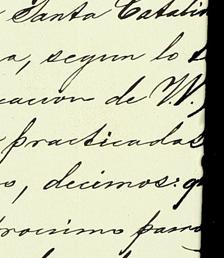 Santa Catalin
a, segun lo
cacion de W.
practicadas
o, decimos: q
rocisimo parro